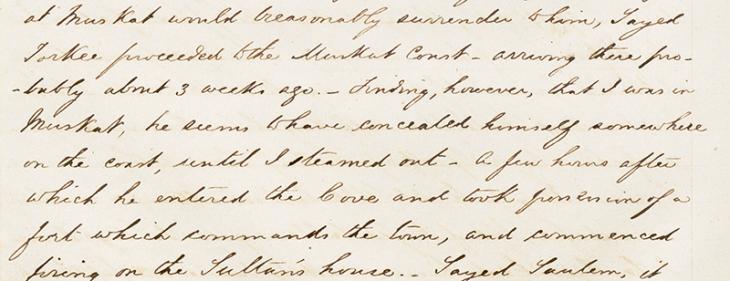 at Muskat would treasonably surrender to him, Sayed
Torkee proceeded to the Muskat Coast - arriving there pro-
-bably about 3 weeks ago. - Finding, however, that I was in
Muskat, he seems to have concealed himself somewhere
on the coast, until I steamed out - a few hours after
which he entered the Cove and took possession of a
fort which commands the town, and commenced
firing on the Sultan's house. - Sayed Saulem, it